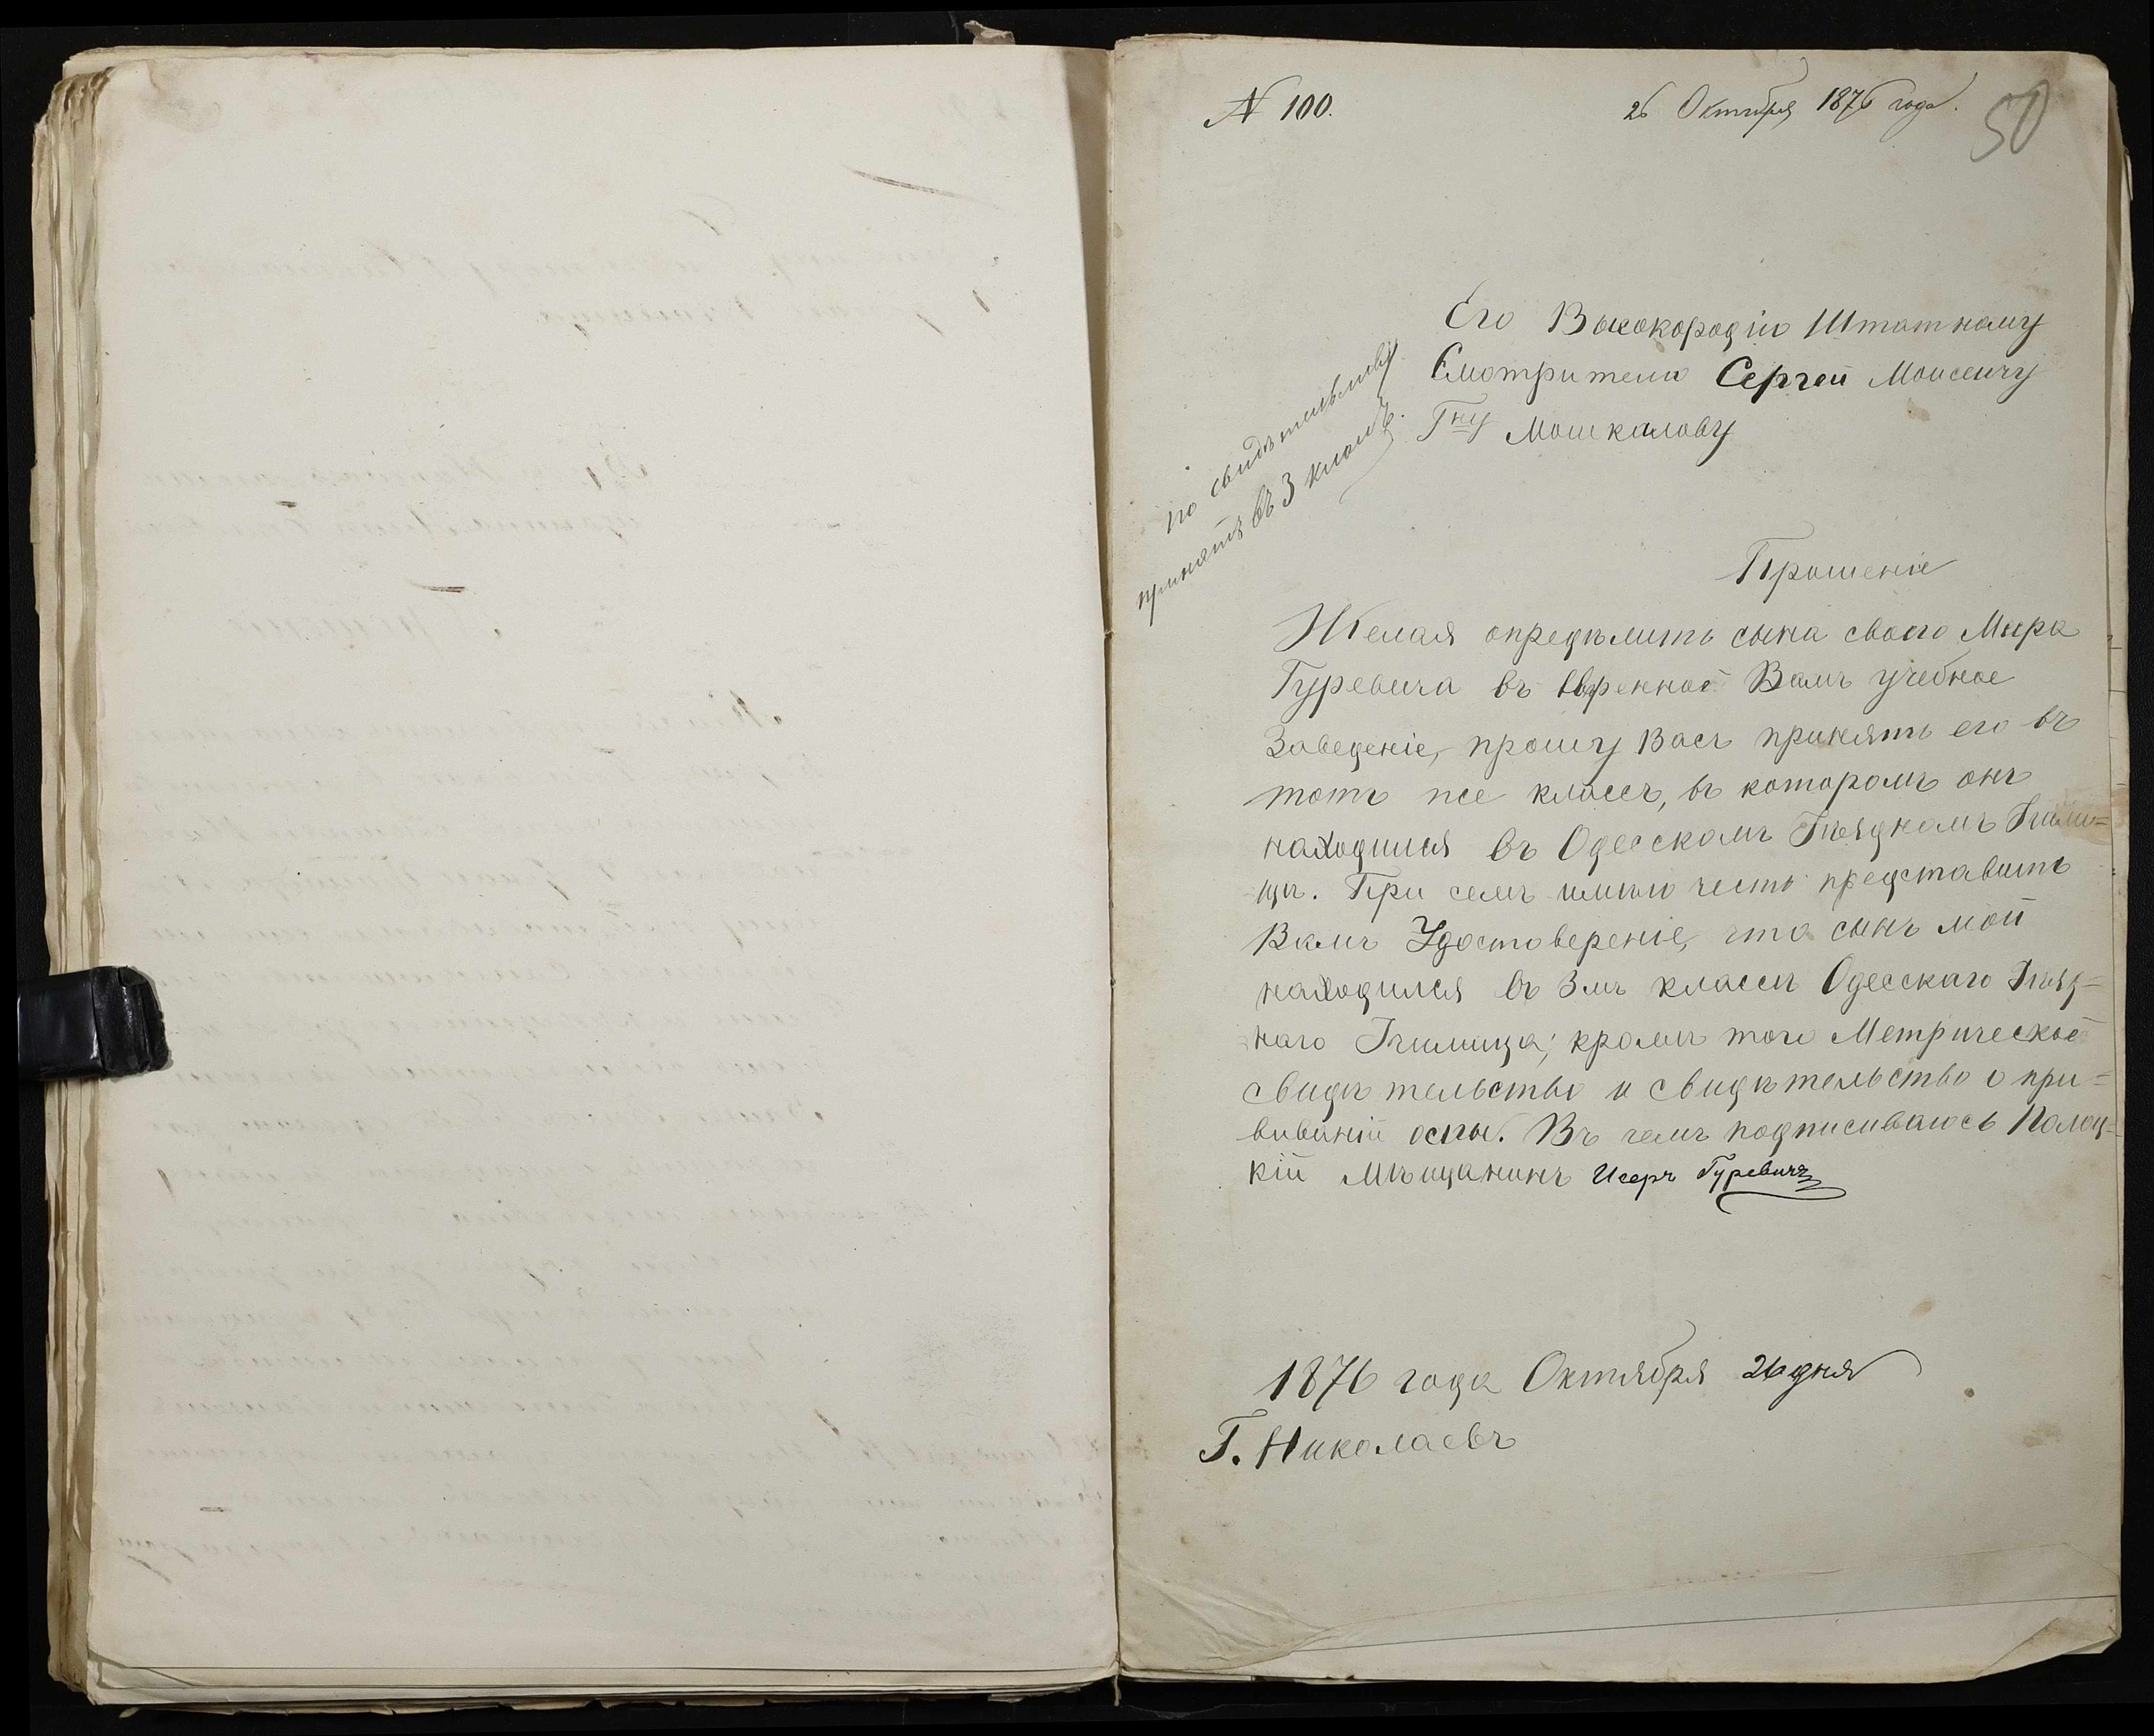 N 100.
26 Октября 1876 года.
50
Его Высокородію Штатному
Смотрителю Сергей Моисеичу
Гну Мошкалову
по свидѣтельству
принятъ въ 3 классъ.
Прошеніе
Желая опредѣлить сына своего Мера
Гуревича въ ввѣренное Вамъ учебное
Заведеніе, прошу Васъ принять его въ
тотъ же классъ, въ которомъ онъ
находился въ Одесскомъ Уѣздномъ Учили=
щѣ. При семъ имѣю честь представить
Вамъ Удостовереніе, что сынъ мой
находился въ 3мъ классѣ Одесскаго Уѣзд=
наго Училища; кромѣ того Метрическое
свидѣтельство и свидѣтельство о при=
виваніи оспы. Въ чемъ подписываюсь Полоц=
кій Мѣщанинъ Исеръ Гуревичъ
1876 года Октября 26 дня
Г. Николаевъ